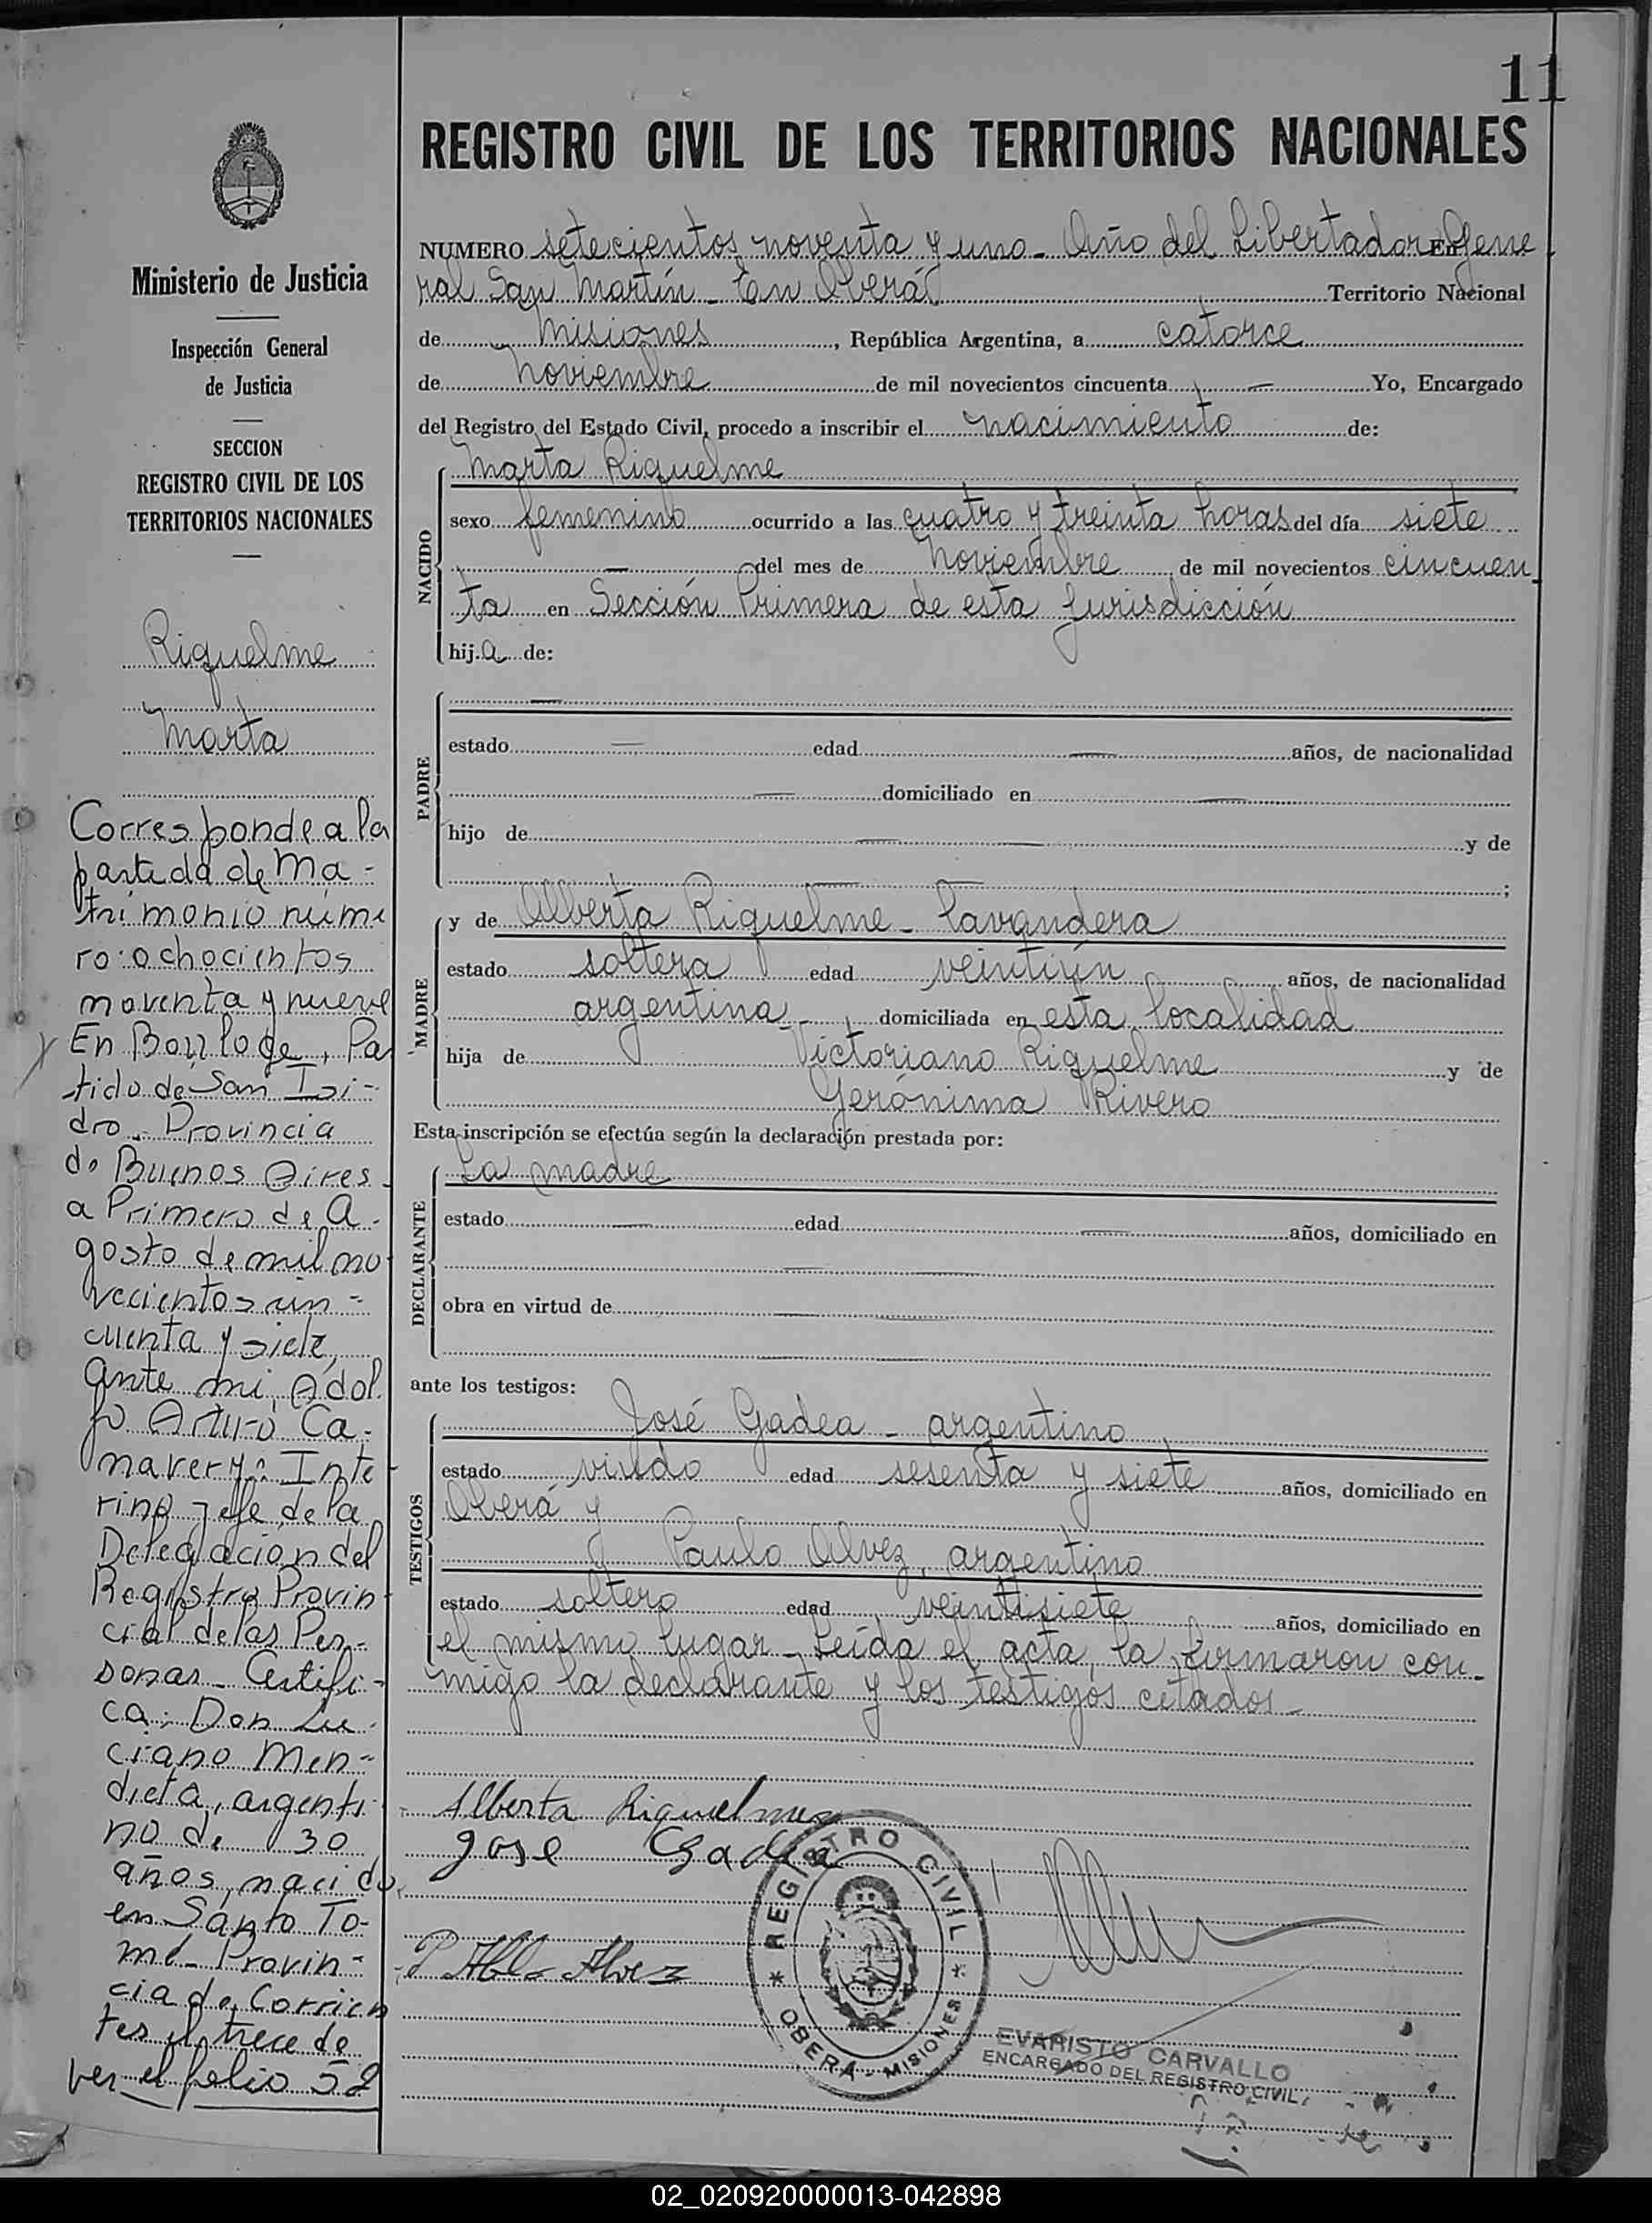 11
REGISTRO CIVIL DE LOS TERRITORIOS NACIONALES
NUMERO setecientos noventa y uno - Año del Libertador En Gene
ral San Martín - En Oberá Territorio Nacional
de Misiones, República Argentina, a catorce
de Noviembre de mil novecientos cincuenta — Yo, Encargado
del Registro del Estado Civil, procedo a inscribir el nacimiento de:
NACIDO
Marta Riquelme
sexo femenino ocurrido a las cuatro y treinta horas del día siete
— del mes de Noviembre de mil novecientos cincuen
ta en Sección Primera de esta Jurisdicción
hij.a de:
PADRE
—
estado — edad — años, de nacionalidad
— domiciliado en —
hijo de — y de
— — ;
MADRE
y de Alberta Riquelme - lavandera
estado soltera edad veintiún años, de nacionalidad
argentina, domiciliada en esta localidad
hija de Victoriano Riquelme y de
Gerónima Rivero
Esta inscripción se efectúa según la declaración prestada por:
DECLARANTE
La madre
estado — edad — años, domiciliado en
— —
obra en virtud de — —
— —
ante los testigos:
TESTIGOS
José Gadea - argentino
estado viudo edad sesenta y siete años, domiciliado en
Oberá y
Paulo Alvez, argentino
estado soltero edad veintisiete años, domiciliado en
el mismo lugar - Leída el acta, la firmaron con-
migo la declarante y los testigos citados -
Alberta Riquelme
Jose Gadea
Alvez
REGISTRO CIVIL
OBERA - MISIONES
EVARISTO CARVALLO
ENCARGADO DEL REGISTRO CIVIL
Ministerio de Justicia
Inspección General
de Justicia
SECCION
REGISTRO CIVIL DE LOS
TERRITORIOS NACIONALES
Riquelme
Marta
Corresponde a la
partida de Ma-
trimonio núme
ro: ochocientos
noventa y nueve
En Boulogne, Par
tido de San Isi-
dro - Provincia
de Buenos Aires -
a Primero de A-
gosto de mil no
vecientos cin-
cuenta y siete,
ante mi, Adol
fo Arturo Ca-
navery: Inte
rino Jefe de la
Delegación del
Registro Provin
cial de las Per-
sonas - Certifi-
ca: Don Lu-
ciano Men-
dieta, argenti
no de 30
años, nacido
en Santo To-
mé - Provin-
cia de Corrien
tes el trece de
ver el folio 52
02_020920000013-042898